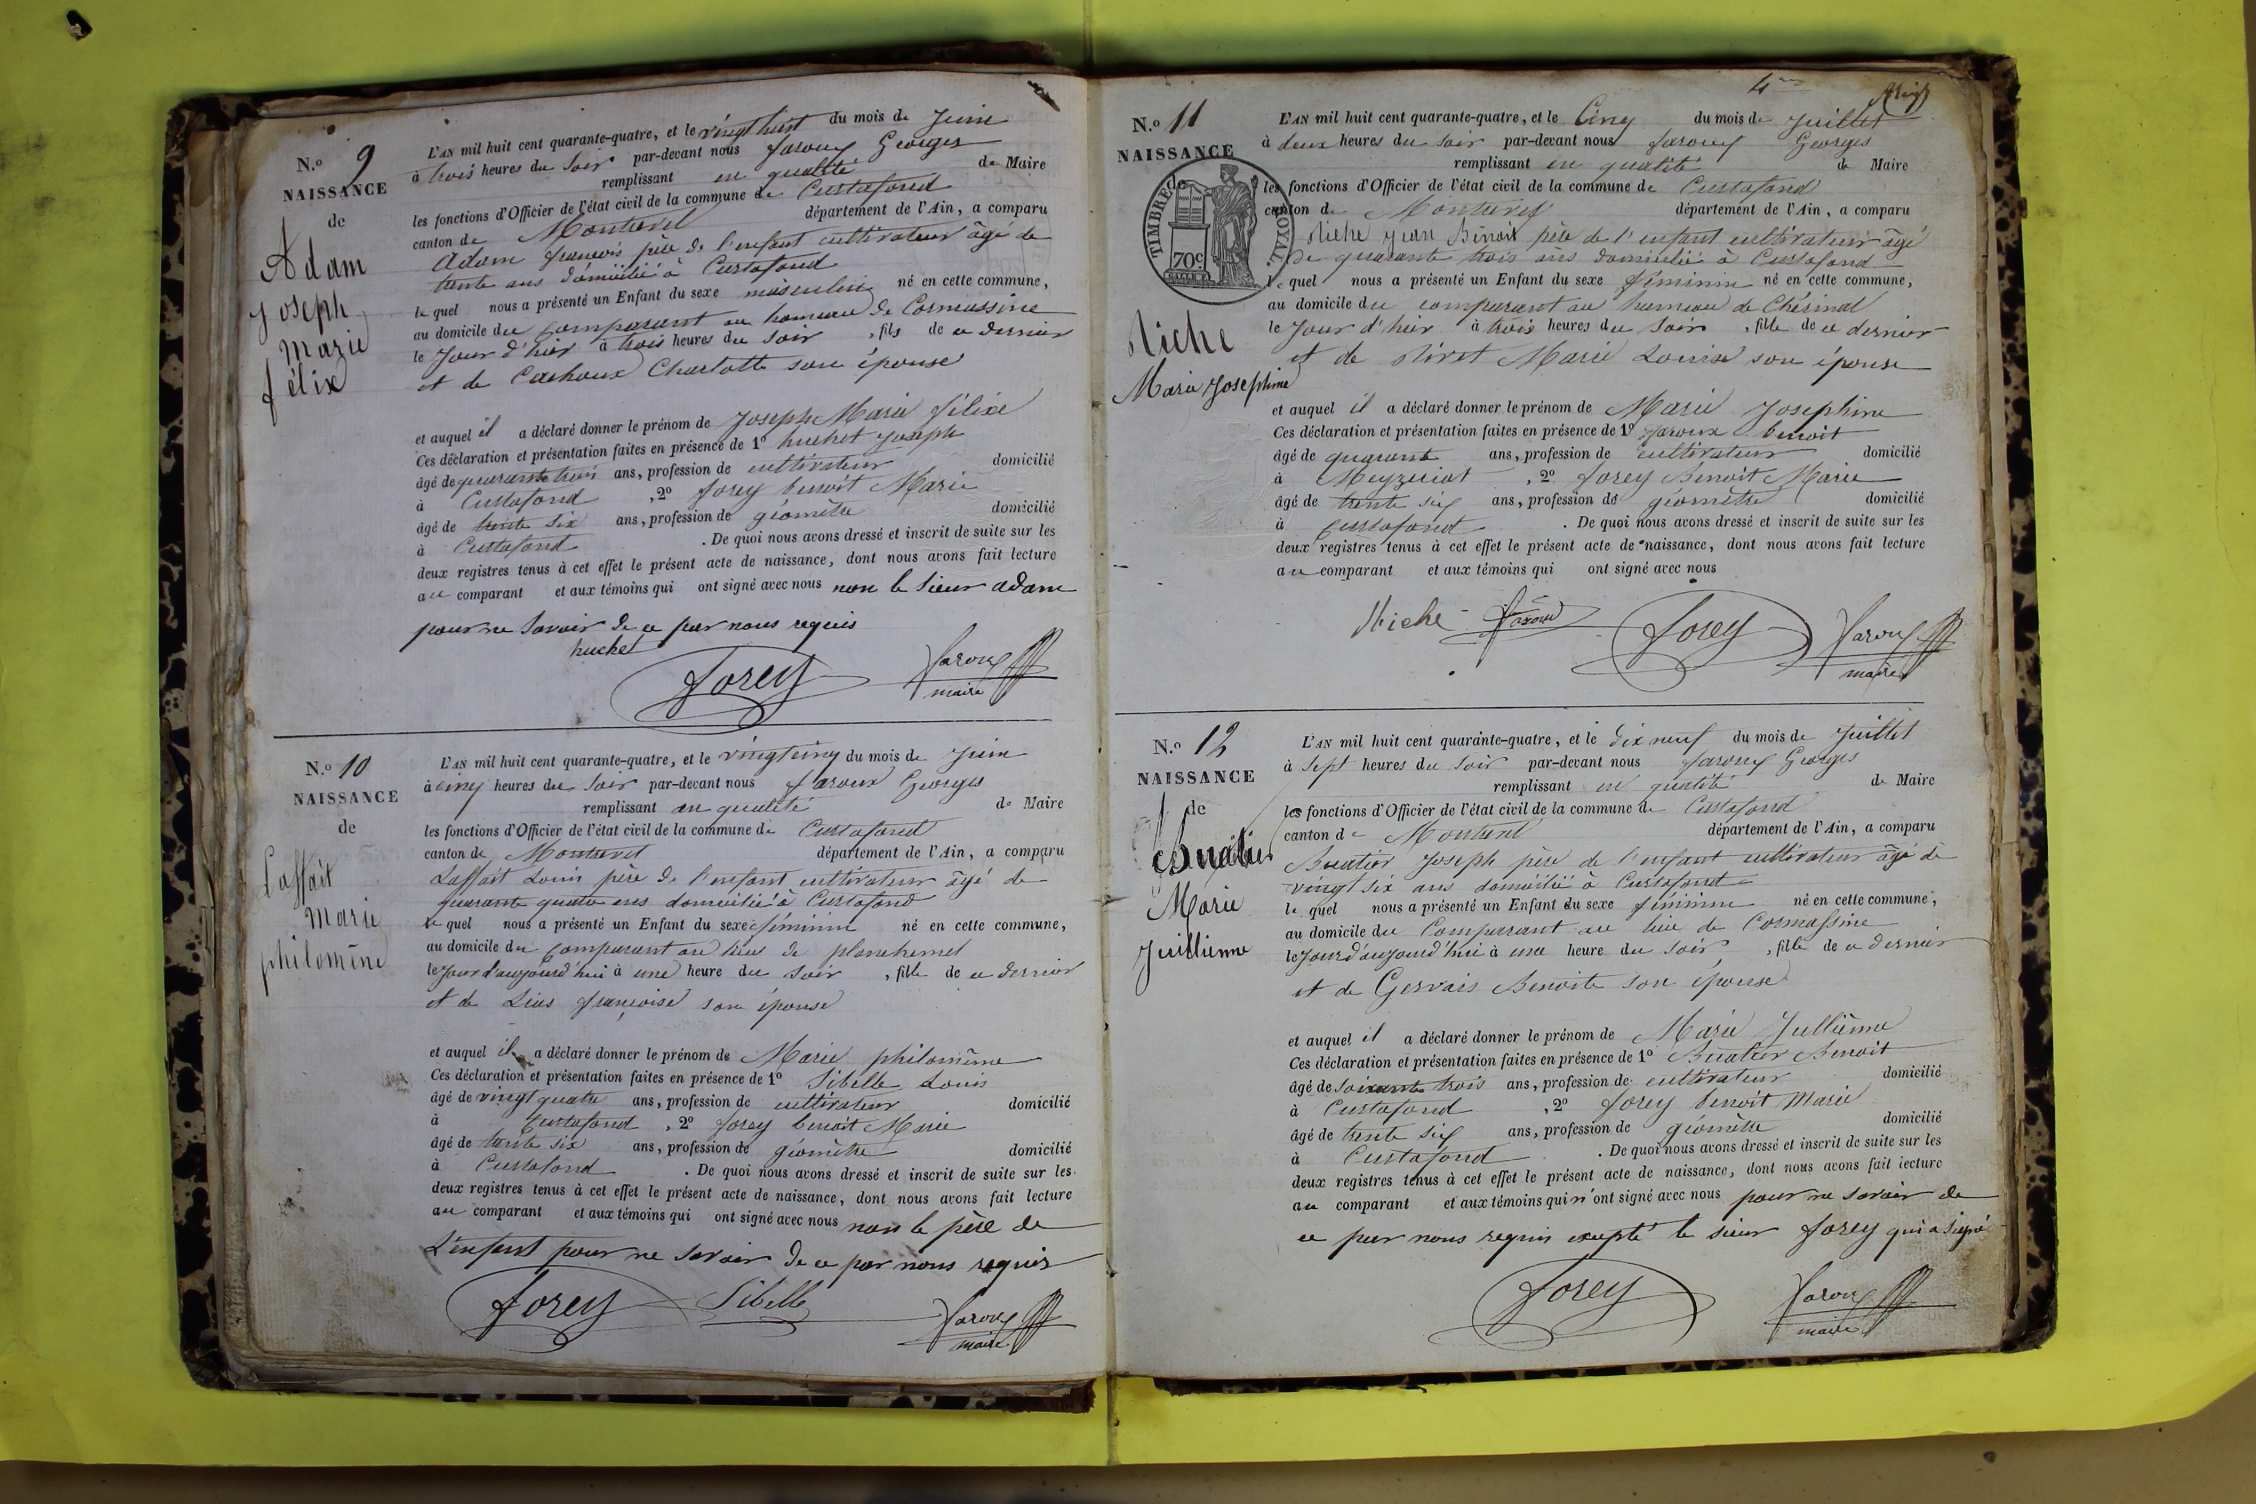 N.º 9
NAISSANCE
de
Adam
Joseph
Marie
félix
L'AN mil huit cent quarante-quatre, et le vingt huit du mois de Juin
à trois heures du Soir par-devant nous faroux Georges
remplissant en qualité de Maire
les fonctions d'Officier de l'état civil de la commune de Curtafond
canton de Montrevel département de l'Ain, a comparu
Adam françois père de l'enfant cultivateur âgé de
trente ans domicilié à Curtafond
le quel nous a présenté un Enfant du sexe masculin né en cette commune,
au domicile du comparant au hameau de Cormassine
le Jour d'hier à trois heures du Soir, fils de ce dernier
et de Charlotte son épouse
et auquel il a déclaré donner le prénom de Joseph Marie félixe
Ces déclaration et présentation faites en présence de 1º huchet Joseph
âgé de quarante trois ans, profession de cultivateur domicilié
à Curtafond, 2º forey benoit Marie
âgé de trente six ans, profession de géomètre domicilié
à Curtafond. De quoi nous avons dressé et inscrit de suite sur les
deux registres tenus à cet effet le présent acte de naissance, dont nous avons fait lecture
au comparant et aux témoins qui ont signé avec nous non le sieur adam
pour ne Savoir de ce par nous requis
huchet
forey
faroux
maire
N.º 10
NAISSANCE
de
Laffait
marie
philomène
L'AN mil huit cent quarante-quatre, et le vingt cinq du mois de Juin
à cinq heures du Soir par-devant nous faroux Georges
remplissant en qualité de Maire
les fonctions d'Officier de l'état civil de la commune de Curtafond
canton de Montrevel département de l'Ain, a comparu
Laffait Louis père de l'enfant cultivateur âgé de
quarante quatre ans domicilié à Curtafond
le quel nous a présenté un Enfant du sexe féminin né en cette commune,
au domicile du comparant au lieu de
le Jour d'aujourd'hui à une heure du soir, fille de ce dernier
et de françoise son épouse
et auquel il a déclaré donner le prénom de Marie philomène
Ces déclaration et présentation faites en présence de 1º Sibelle Louis
âgé de vingt quatre ans, profession de cultivateur domicilié
à Curtafond, 2º forey benoit Marie
âgé de trente six ans, profession de géomètre domicilié
à Curtafond. De quoi nous avons dressé et inscrit de suite sur les
deux registres tenus à cet effet le présent acte de naissance, dont nous avons fait lecture
au comparant et aux témoins qui ont signé avec nous non le père de
L'enfant pour ne savoir de ce par nous requis
forey
Sibelle
faroux
maire
4
N.º 11
NAISSANCE
de
TIMBRE ROYAL.
70c.
Niche
Marie Josephine
L'AN mil huit cent quarante-quatre, et le Cinq du mois de Juillet
à deux heures du soir par-devant nous faroux Georges
remplissant en qualité de Maire
les fonctions d'Officier de l'état civil de la commune de Curtafond
canton de Montrevel département de l'Ain, a comparu
Niche Jean Benoit père de l'enfant cultivateur âgé
de quarante trois ans domicilié à Curtafond
le quel nous a présenté un Enfant du sexe féminin né en cette commune,
au domicile du comparant au hameau de Chérinal
le Jour d'hier à trois heures du Soir, fille de ce dernier
et de Nivet Marie Louise son épouse
et auquel il a déclaré donner le prénom de Marie Josephine
Ces déclaration et présentation faites en présence de 1º faroux benoit
âgé de quarante ans, profession de cultivateur domicilié
à Meyzeriat, 2º forey Benoit Marie
âgé de trente six ans, profession de géomètre domicilié
à Curtafond. De quoi nous avons dressé et inscrit de suite sur les
deux registres tenus à cet effet le présent acte de naissance, dont nous avons fait lecture
au comparant et aux témoins qui ont signé avec nous
Niche
faroux
forey
faroux
maire
N.º 12
NAISSANCE
de
Buatier
Marie
Jullienne
L'AN mil huit cent quarante-quatre, et le dix neuf du mois de Juillet
à Sept heures du Soir par-devant nous faroux Georges
remplissant en qualité de Maire
les fonctions d'Officier de l'état civil de la commune de Curtafond
canton de Montrevel département de l'Ain, a comparu
Buatier Joseph père de l'enfant cultivateur âgé de
vingt six ans domicilié à Curtafond
le quel nous a présenté un Enfant du sexe féminin né en cette commune,
au domicile du Comparant au lieu de Cormassine
le Jour d'aujourd'hui à une heure du Soir, fille de ce dernier
et de Gervais Benoite son épouse
et auquel il a déclaré donner le prénom de Marie Jullienne
Ces déclaration et présentation faites en présence de 1º Buatier Benoit
âgé de soixante trois ans, profession de cultivateur domicilié
à Curtafond, 2º forey benoit Marie
âgé de trente six ans, profession de géomètre domicilié
à Curtafond. De quoi nous avons dressé et inscrit de suite sur les
deux registres tenus à cet effet le présent acte de naissance, dont nous avons fait lecture
au comparant et aux témoins qui n'ont signé avec nous pour ne savoir de
ce par nous requis excepté le sieur forey qui a signé
forey
faroux
maire